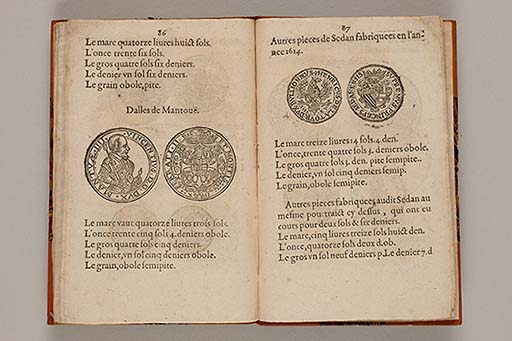 86
Le marc quatorze liures huict sols.
L'once trente six sols.
Le gros quatre sols six deniers.
Le denier vn sol six deniers.
Le grain obole, pite.
Dalles de Mantouë.
Le marc vaut quatorze liures trois sols.
L'once trente cinq sols 4. deniers obole.
Le gros quatre sols cinq deniers.
Le denier, vn sol cinq deniers obole.
Le grain, obole semipite.
87
Autres pieces de Sedan fabriquees en l'an-
nee 1614.
Le marc treize liures 14 sols 4. den.
L'once, trente quatre sols 3. deniers obole.
Le gros quatre sols 3. den. pite semipite.
Le denier, vn sol cinq deniers semip.
Le grain, obole semipite.
Autres pieces fabriquees audit Sedan au
mesme pourtraict cy dessus, qui ont eu
cours pour deux sols & six deniers.
Le marc, cinq liures treize sols huict den.
L'once, quatorze sols deux d. ob.
Le gros vn sol neuf deniers p. Le denier 7. d